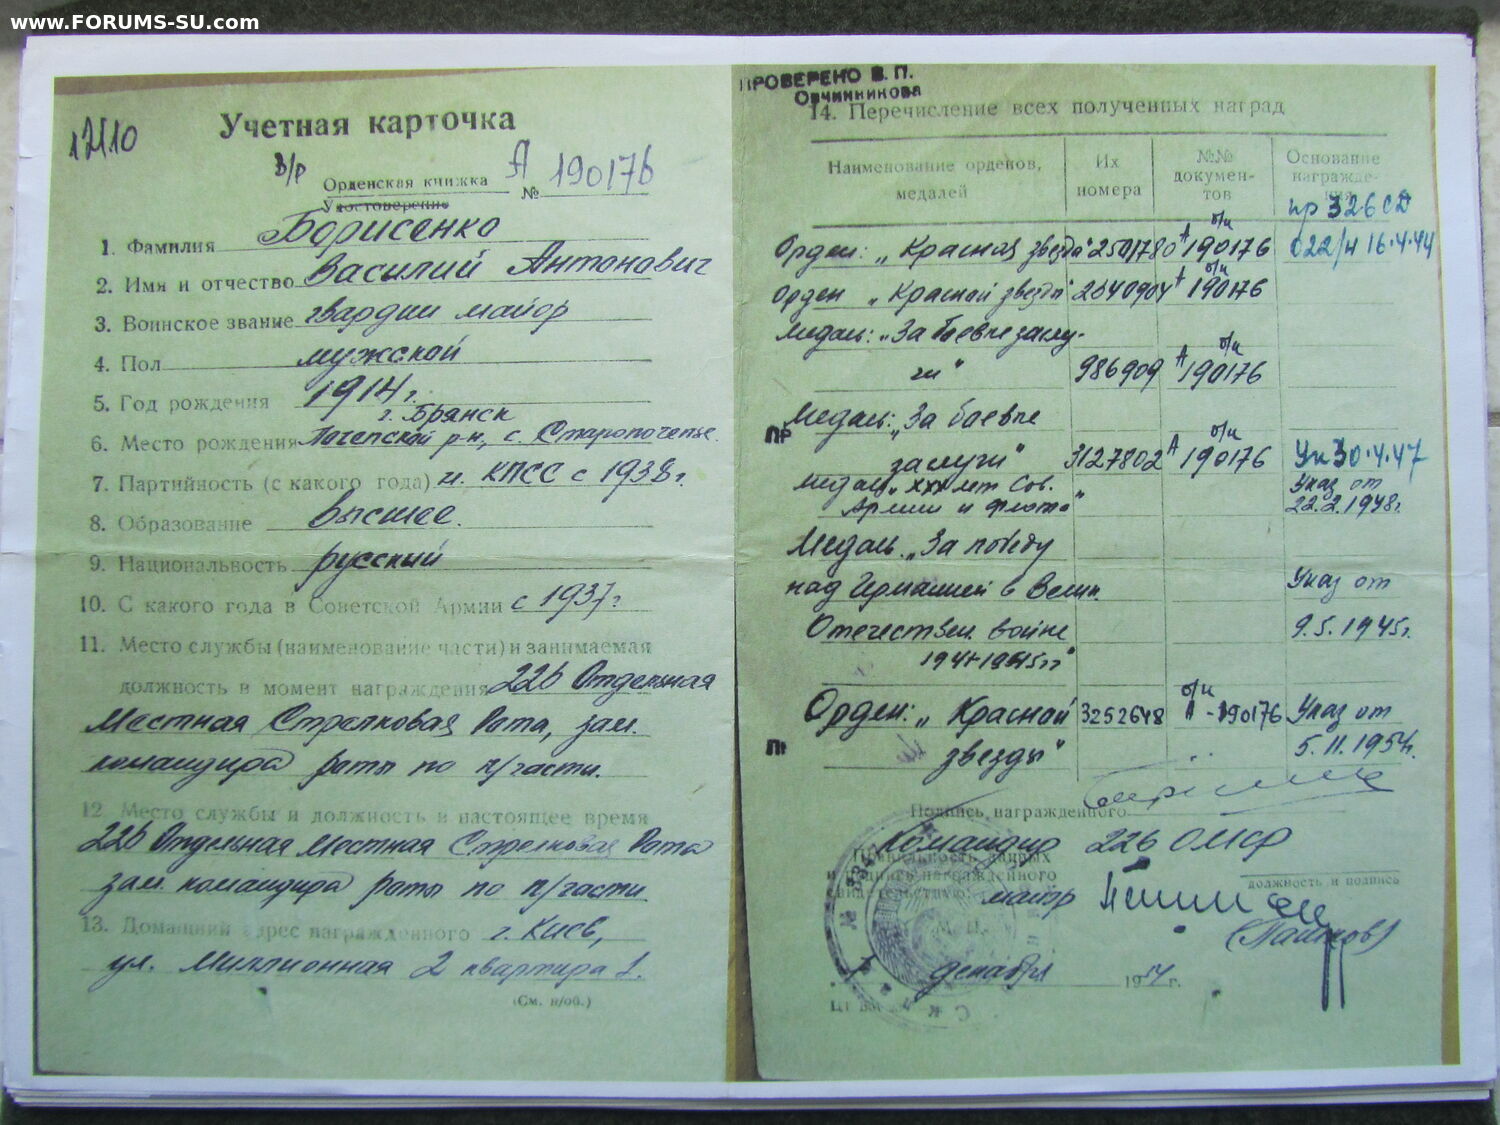 www.FORUMS-SU.com
Учетная карточка
В/р
Орденская книжка А № 190176
Удостоверение
1. Фамилия Борисенко
2. Имя и отчество Василий Антонович
3. Воинское звание гвардии майор
4. Пол мужской
5. Год рождения 1914 г.
г. Брянск
6. Место рождения Почепской р-н, с. Старопочепье.
7. Партийность (с какого года) чл. КПСС с 1938 г.
8. Образование Высшее.
9. Национальность русский
10. С какого года в Советской Армии с 1937 г
11. Место службы (наименование части) и занимаемая
должность в момент награждения 226 Отдельная
Местная Стрелковая Рота, зам.
командира роты по п/части.
12 Место службы и должность в настоящее время
226 Отдельная Местная Стрелковая Рота
зам. командира роты по п/части.
13. Домашний адрес награжденного г. Киев,
ул. Миллионная 2 квартира 1.
(См. н/об.)
ПРОВЕРЕНО В. П.
Овчинникова
14. Перечисление всех полученных наград
Наименование орденов, медалей
Их номера
№№ документов
Основание награждения
пр 326 СД
Орден: „Красная звезда" 2501780 А о/к 190176 022/н 16.4.44
Орден „Красной звезды" А о/к 190176
Медаль: „За боевые заслу-
ги" 986909 А о/к 190176
Медаль: „За боевые
ПР
заслуги" 3127802 А о/к 190176 Ук 30.4.47
медаль „XXX лет Сов. Указ от
Армии и Флота" 22.2.1948г.
Медаль „За победу
над Германией в Велик. Указ от
Отечествен. войне 9.5.1945г.
1941-1945 гг"
Орден: „Красной 3252648 о/к А-190176 Указ от
звезды" 5.11.1954г.
Подпись награжденного
Командир 226 ОМСР
Правильность данных
и подпись награжденного
свидетельствую:
должность и подпись
майор
(Пашков)
М. П.
декабря 1954 г.